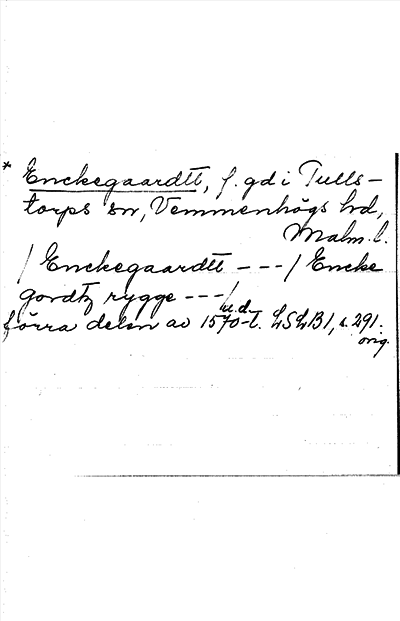 * Enckegaardtt, f. gd i Tulls-
torps sn, Vemmenhögs hd,
Malm. l.
/ Enckegaardtt - - - / Encke
gordtz rygge - - - /
u.d.
förra delen av 1570-t. LSLB1, s. 291.
orig.